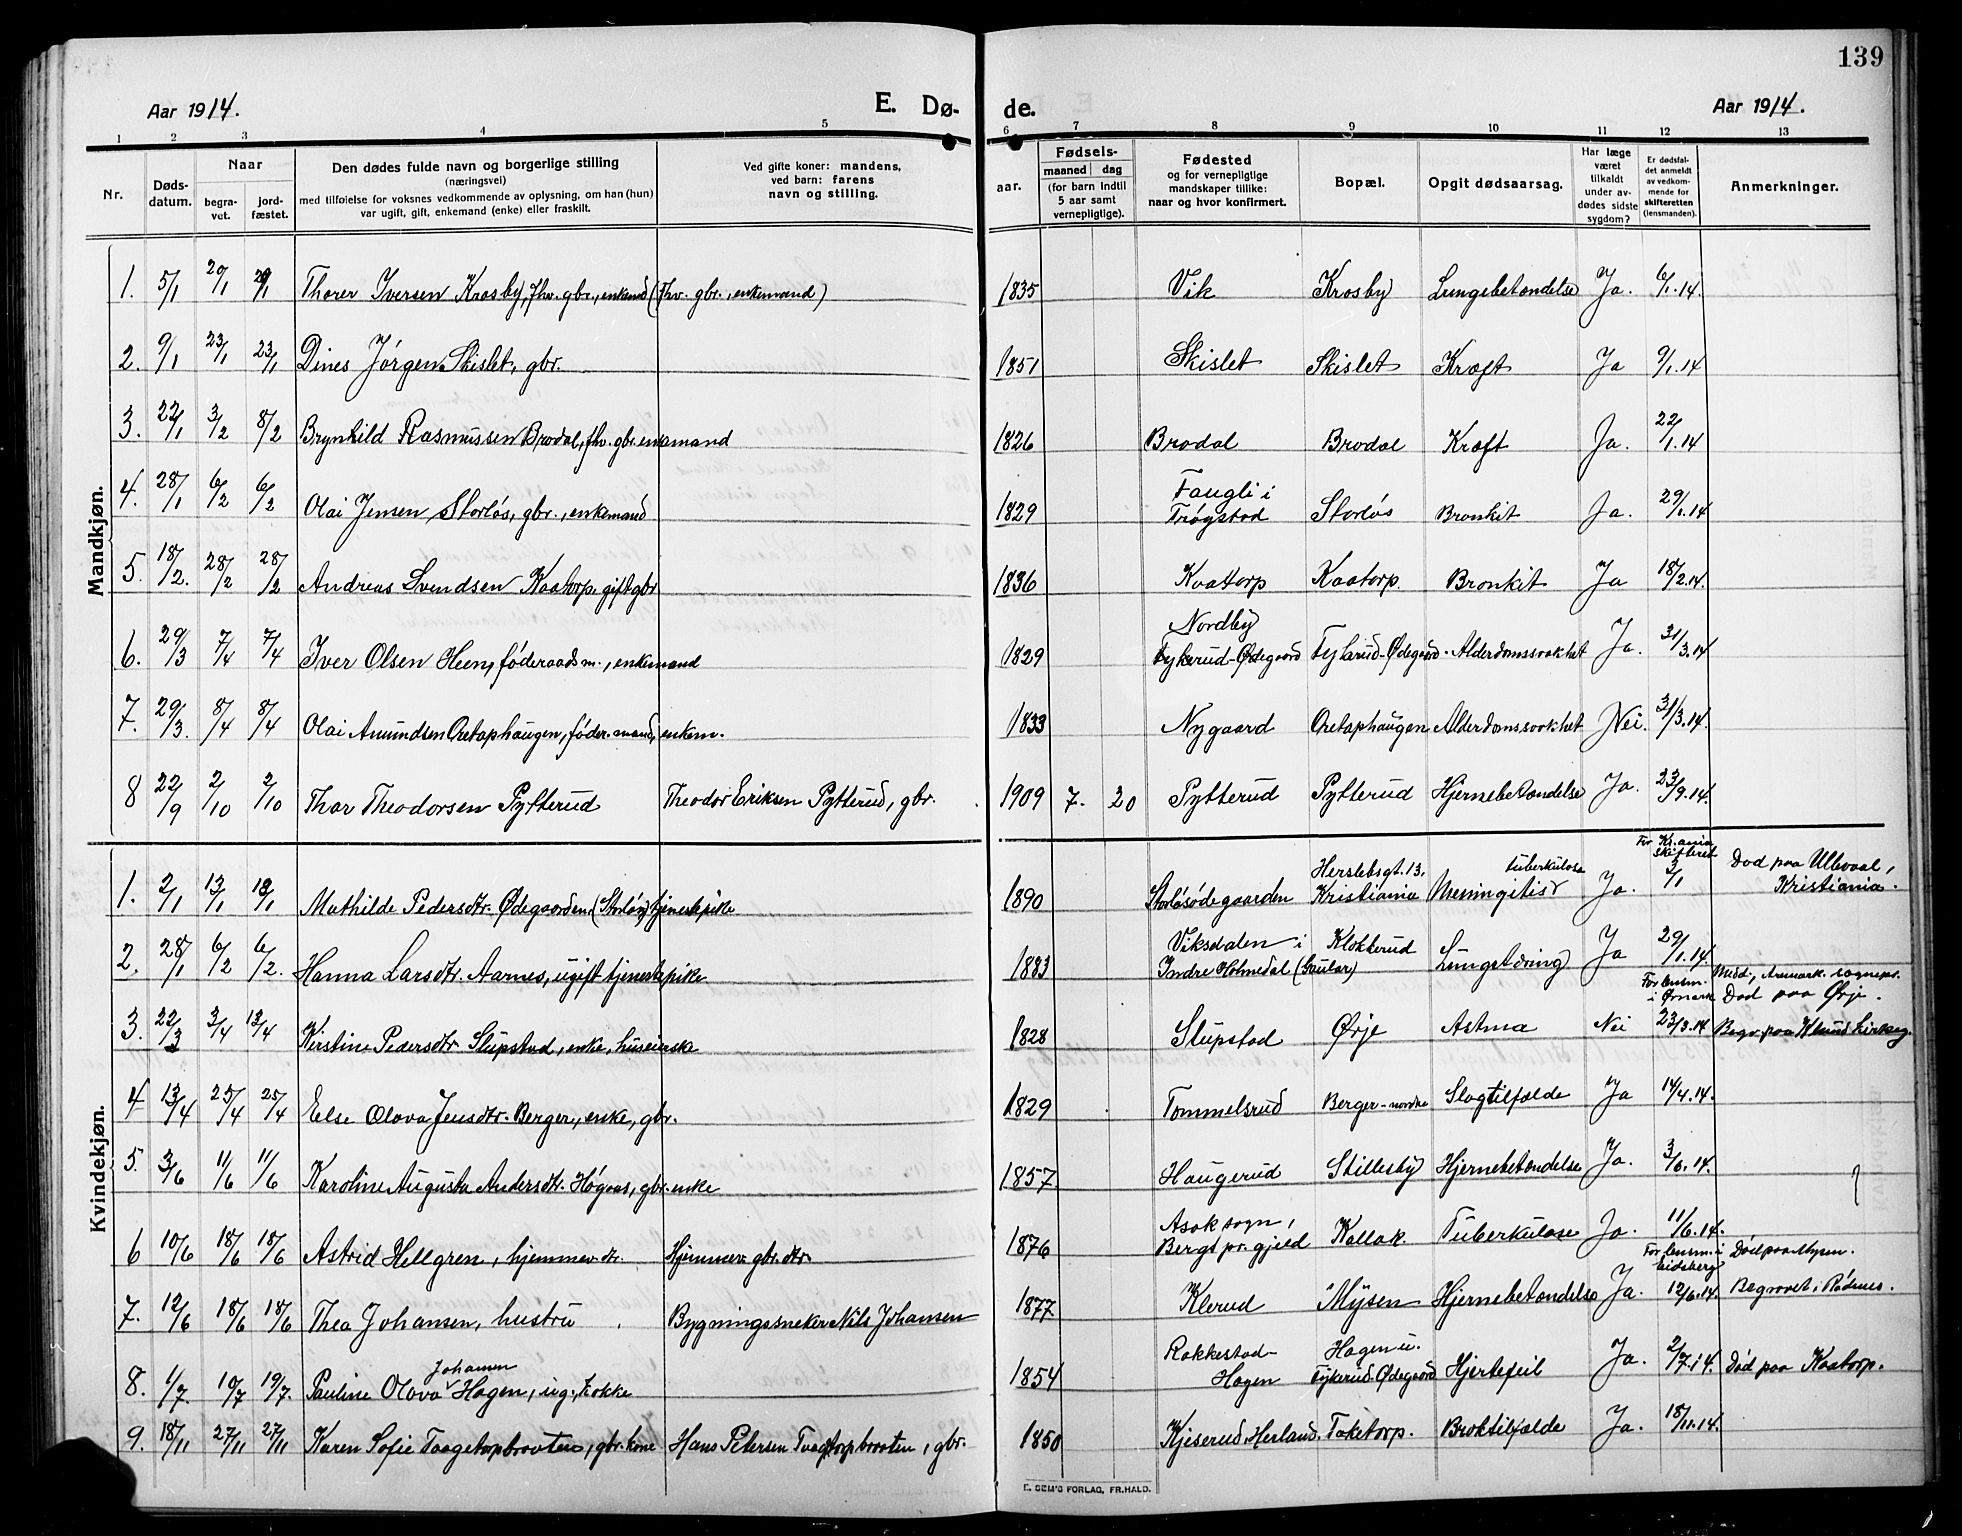 139
Aar 1914. E. Dø- de. Aar 1914.
1 2 3 4 5 6 7 8 9 10 11 12 13
Nr. Døds-datum. Naar begra-vet. jord-fæstet. Den dødes fulde navn og borgerlige stilling (næringsvei) med tilføielse for voksnes vedkommende av oplysning, om han (hun) var ugift, gift, enkemand (enke) eller fraskilt. Ved gifte koner: mandens, ved barn: farens navn og stilling. aar. Fødsels- maaned dag (for barn indtil 5 aar samt vernepligtige). Fødested og for vernepligtige mandskaper tillike: naar og hvor konfirmert. Bopæl. Opgit dødsaarsag. Har læge været tilkaldt under av-dødes sidste sygdom? Er dødsfal-det anmeldt av vedkom-mende for skifteretten (lensmanden). Anmerkninger.
Mandkjøn.
1. 5/1 29/1 29/1 Thorer Iversen Krosby, fhv. gbr., enkemd (fhv. gbr., enkemand) 1835 Vik Krosby Lungebetændelse Ja. 6/1.14.
2. 9/1 23/1 23/1 Dines Jørgen Skislet, gbr. 1851 Skislet Skislet Kræft Ja 9/1.14
3. 22/1 3/2 8/2 Brynhild Rasmussen Brodal, fhv. gbr. enkemand 1826 Brodal Brodal Kræft Ja. 22/1.14
4. 28/1 6/2 6/2 Olai Jensen Storløs, gbr., enkemand 1829 Fangli i Trøgstad Storløs Bronkit Ja. 29/1.14
5. 18/2. 28/2 28/2 Andreas Svendsen Kaatorp, gift gbr 1836 Kaatorp Kaatorp. Bronkit Ja 18/2.14.
6. 29/3 7/4 7/4 Iver Olsen Heen, føderaadsm., enkemand 1829 Nordby Fykerud-Ødegaard Fykerud-Ødegaard. Alderdomssvakhet Ja. 31/3.14
7. 29/3. 8/4 8/4 Olai Amundsen Oretaphaugen, føder.mand, enkem. 1833 Nygaard Oretaphaugen Alderdomssvakhet Nei. 31/3.14.
8 22/9 2/10 2/10 Thor Theodorsen Pytterud Theodor Eriksen Pytterud, gbr. 1909 7. 20 Pytterud Pytterud Hjernebetændelse Ja. 23/9.14.
Kvindekjøn.
1. 2/1 13/1 13/1 Mathilde Pedersdtr. Ødegaarden (Storløs) tjenestepike 1890 Storløsødegaarden Herslebsgt. 13, Kristiania tuberkuløse Meningitis Ja. For Kr.ania skifteret 3/1 Død paa Ullevaal, Kristiania.
2. 28/1 6/2 6/2. Hanna Larsdtr. Aarnes, ugift tjenestepike 1883 Viksdalen i Indre Holmedal (Gaular) Klokkerud Lungetæring Ja 29/1.14.
3. 22/3 3/4 13/4 Kirstine Pedersdtr Slupstad, enke, huseierske 1828 Slupstad Ørje Astma Nei For lensm. i Ømark 23/3.14. Medd, Aremark. sognepr. Død paa Ørje. Begr. paa Klund kirkeg.
4 13/4 25/4 25/4 Else Olava Jensdtr. Berger, enke, gbr. 1829 Tommelsrud Berger-nordre Slagtilfælde Ja 14/4.14.
5. 3/6 11/6 11/6 Karoline Augusta Andersdtr. Høgaas, gbr. enke 1857. Haugerud Stillesby Hjernebetændelse Ja. 3/6.14.
6 10/6 18/6 18/6 Astrid Hellgren, hjemmev. dtr. Hjemmev. gbr. dtr. 1876 Asak sogn, Bergs pr.gjeld Kallak. Tuberkulose Ja. 11/6.14.
7. 12/6 18/6 18/6 Thea Johansen, hustru Bygningssneker Nils Johansen 1877. Klerud Mysen Hjernebetændelse Ja. For lensm. i Eidsberg 12/6.14. Død paa Mysen. Begravet i Rødenes.
8. 1/7. 10/7 19/7. Pauline Olava Johansen Hagen, ug., kokke 1854 Rakkestad-Hagen Hagen u. Fykerud-Ødegaard Hjertefeil Ja. 2/7.14. Død paa Kaatorp.
9. 18/11 27/11 27/11 Karen Sofie Taagetorpbraaten, gbr. kone Hans Petersen Taagetorpbraaten, gbr. 1850 Kjeserud, Herland. Taketorp. Broktilfælde Ja. 18/11.14.
E. SEM'S FORLAG, FR.HALD.